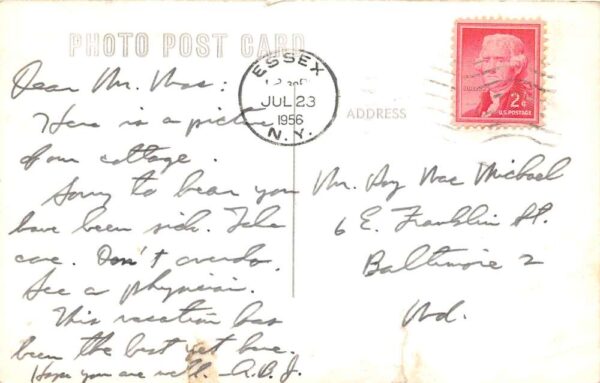 PHOTO POST CARD
ESSEX
JUL 23
1956
N.Y.
JEFFERSON
2¢
U.S. POSTAGE
ADDRESS
Dear Mr. Mac:
Here is a picture
of our cottage.
Sorry to hear you
have been sick. Take
care. Don't overdo.
See a physician.
This vacation has
been the best yet here.
Hope you are well. —A.B.J.
Mr. Roy Mac Michael
6 E. Franklin St.
Baltimore 2
Md.